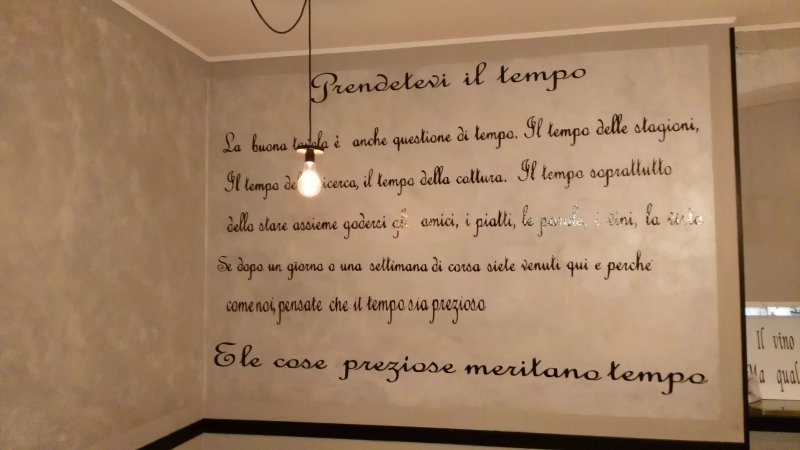 Prendetevi il tempo
La buona tavola è anche questione di tempo. Il tempo delle stagioni,
Il tempo della ricerca, il tempo della cottura. Il tempo soprattutto
dello stare assieme godersi gli amici, i piatti, le parole, i vini, la vista
Se dopo un giorno o una settimana di corsa siete venuti qui e perché
come noi, pensate che il tempo sia prezioso
E le cose preziose meritano tempo
Il vino
Ma qual